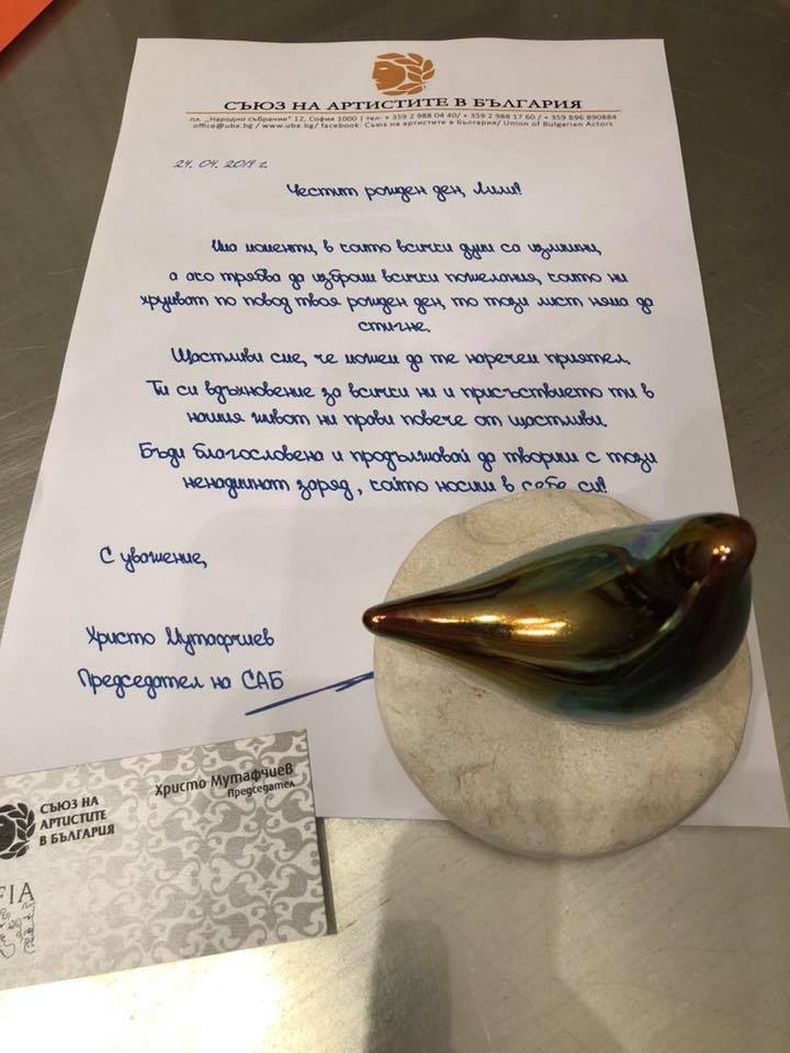 СЪЮЗ НА АРТИСТИТЕ В БЪЛГАРИЯ
пл. „Народно събрание" 12, София 1000 | тел: + 359 2 988 04 40/ + 359 2 988 17 60 / + 359 896 890884
office@uba.bg / www.uba.bg/ facebook: Съюз на артистите в България/ Union of Bulgarian Actors
24. 04. 2019 г.
Честит рожден ден, Лили!
Има моменти, в които всички думи са излишни,
а ако трябва да изброим всички пожелания, които ни
хрумват по повод твоя рожден ден, то този лист няма да
стигне.
Щастливи сме, че можем да те наречем приятел.
Ти си вдъхновение за всички ни и присъствието ти в
нашия живот ни прави повече от щастливи.
Бъди благословена и продължавай да твориш с този
ненадминат заряд, който носиш в себе си!
С уважение,
Христо Мутафчиев
Председател на САБ
Христо Мутафчиев
Председател
СЪЮЗ НА
АРТИСТИТЕ
В БЪЛГАРИЯ